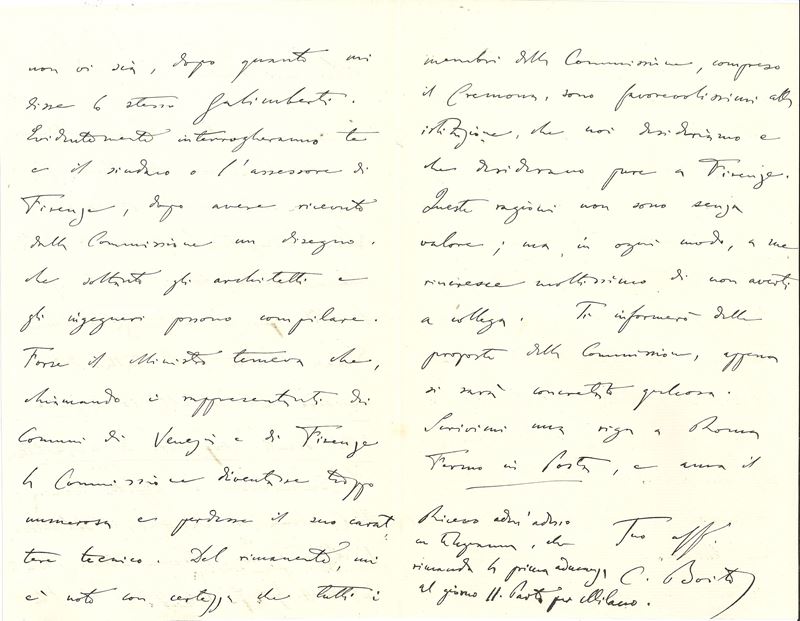 non vi sia, dopo quanto mi
disse lo stesso Galimberti.
Evidentemente interrogheranno te
e il sindaco o l'assessore di
Firenze, dopo avere ricevuto
dalla Commissione un disegno,
che soltanto gli architetti e
gli ingegneri possono compilare.
Forse il Ministro temeva che,
chiamando i rappresentanti dei
Comuni di Venezia e di Firenze
la Commissione diventasse troppo
numerosa e perdesse il suo carat
tere tecnico. Del rimanente, mi
è noto con certezza che tutti i
membri della Commissione, compreso
il Cremona, sono favorevolissimi alla
istituzione, che noi desideriamo e
che desiderano pure a Firenze.
Queste ragioni non sono senza
valore; ma, in ogni modo, a me
rincresce moltissimo di non averti
a collega. Ti informerò delle
proposte della Commissione, appena
si sarà concretato qualcosa.
Scrivimi una riga a Roma
Fermo in Posta, e ama il
Tuo aff.
C. Boito
Ricevo adess'adesso
un telegramma, che
rimanda la prima adunanza
al giorno 11. Parto per Milano.